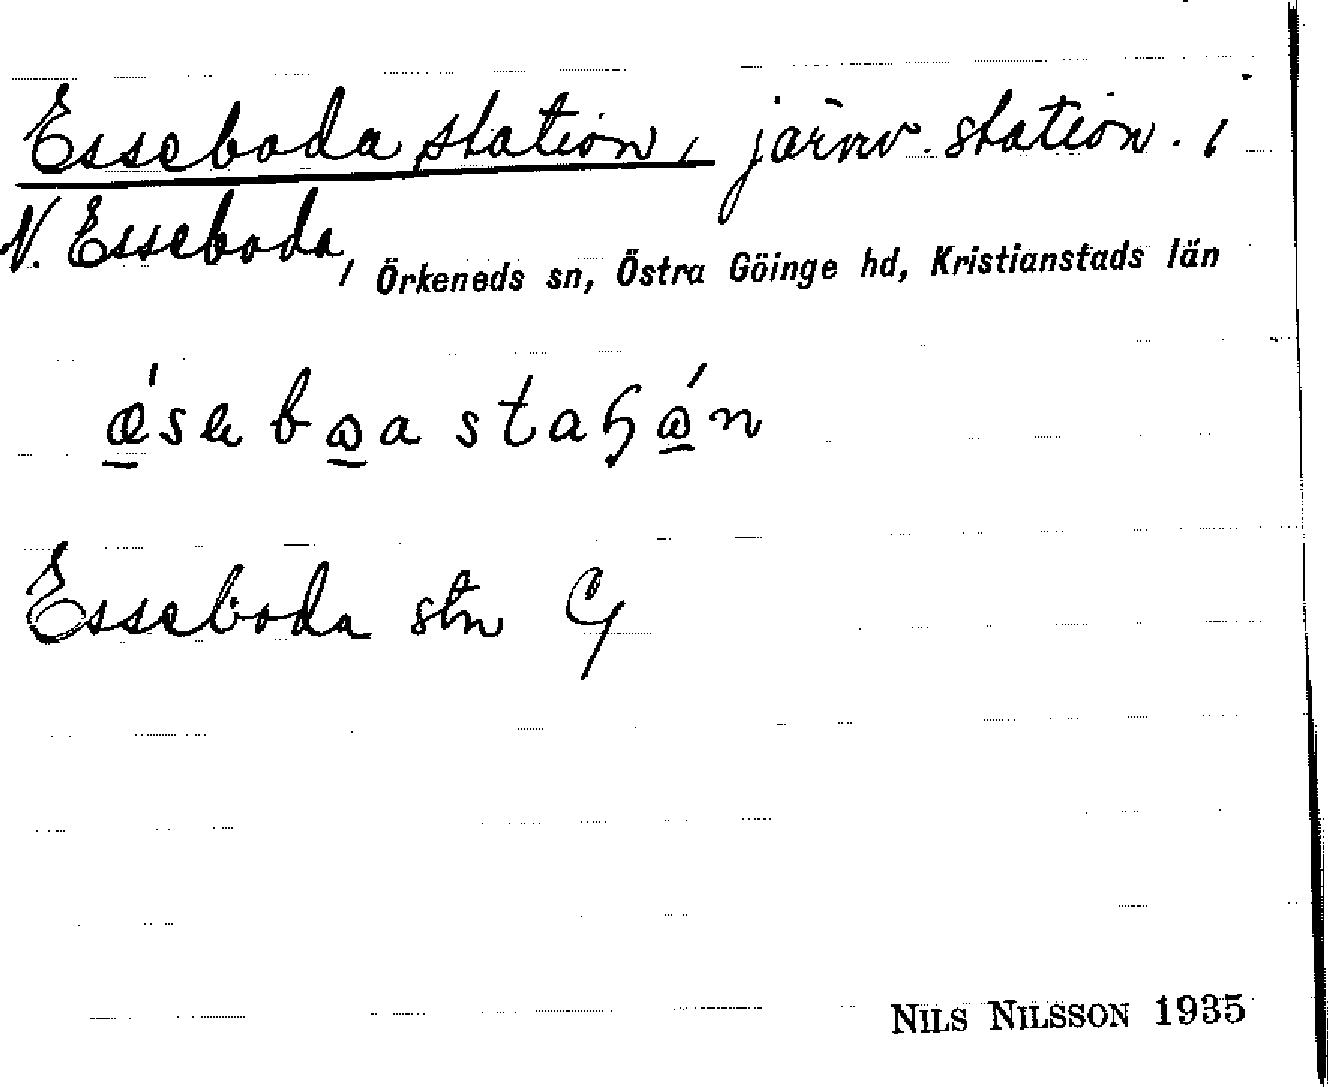 Esseboda station, järnv. station. i
N. Esseboda, Örkeneds sn, Östra Göinge hd, Kristianstads län
Esseboda stn G
NILS NILSSON 1935